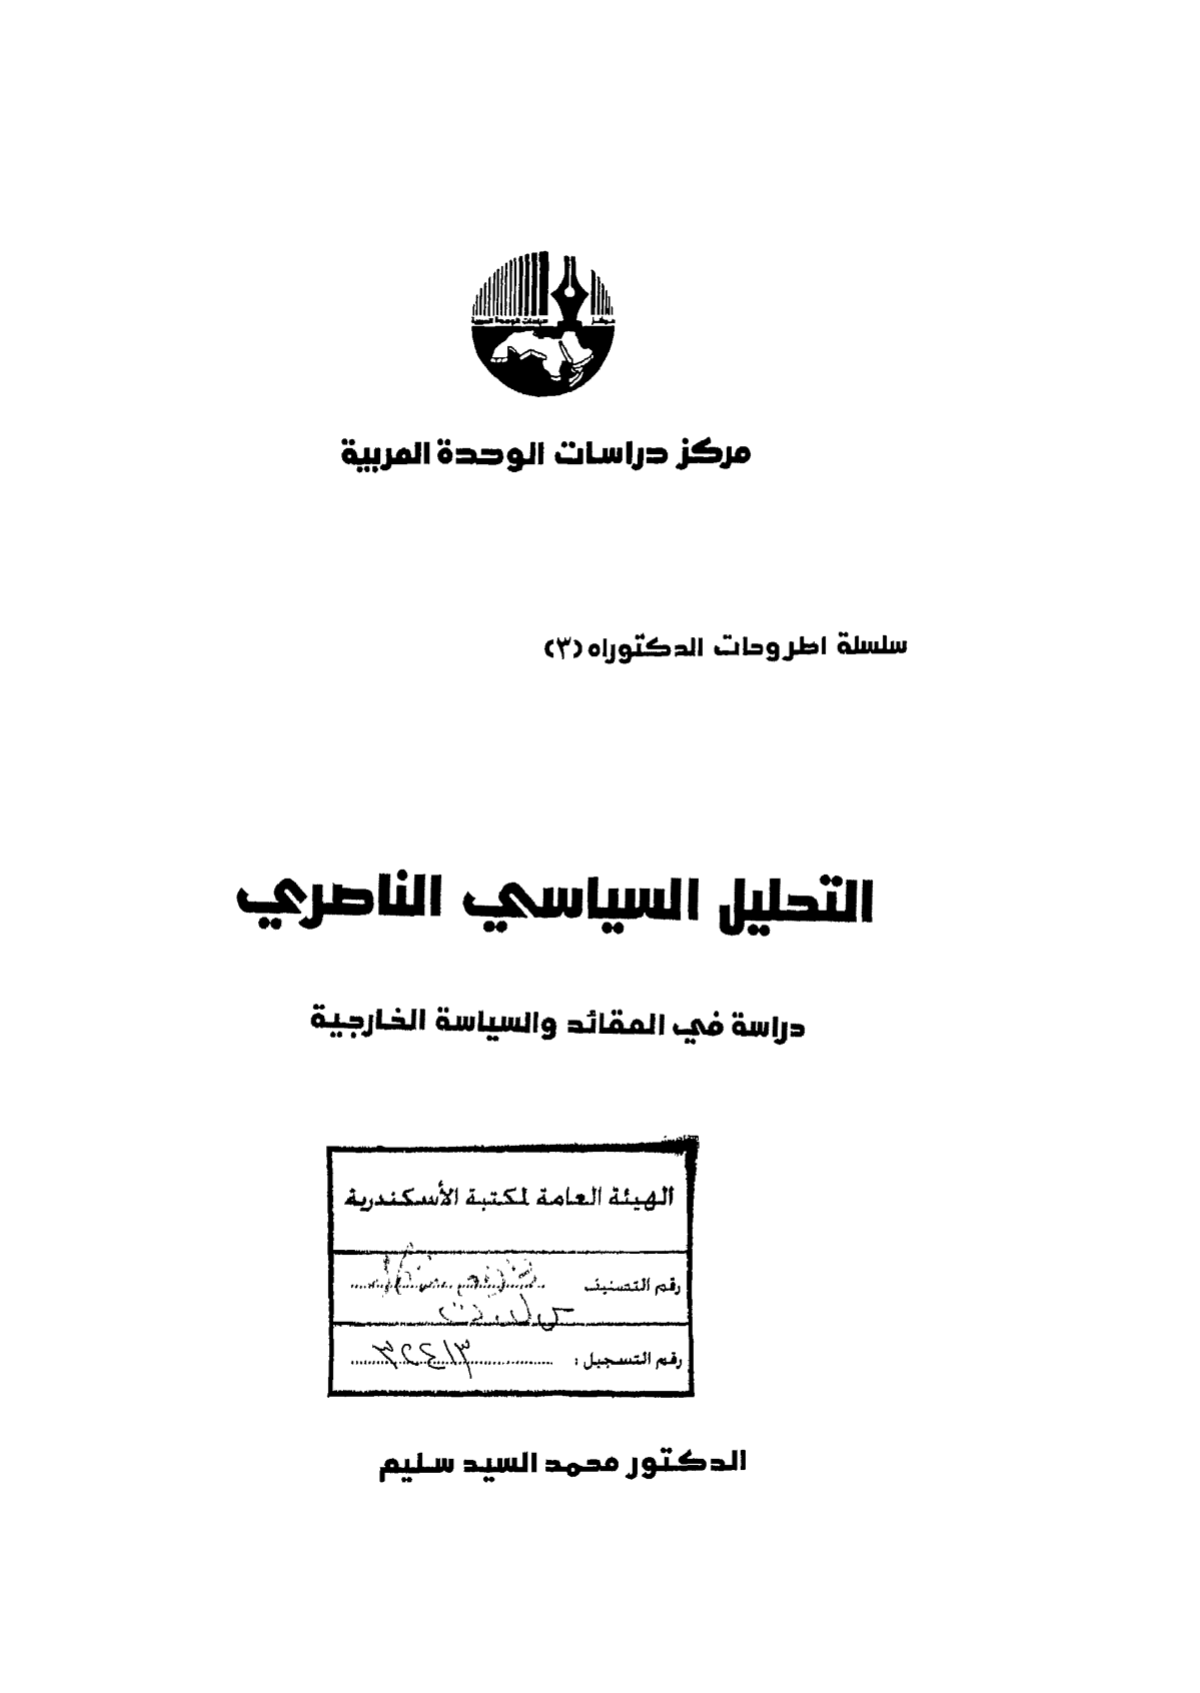 مركز دراسات الوحدة العربية
مركز دراسات الوحدة العربية
سلسلة اطروحات الدكتوراه (٣)
التحليل السياسي الناصري
دراسة في العقائد والسياسة الخارجية
الهيئة العامة لمكتبة الأسكندرية
رقم التصنيف
رقم التسجيل :
الدكتور محمد السيد سليم